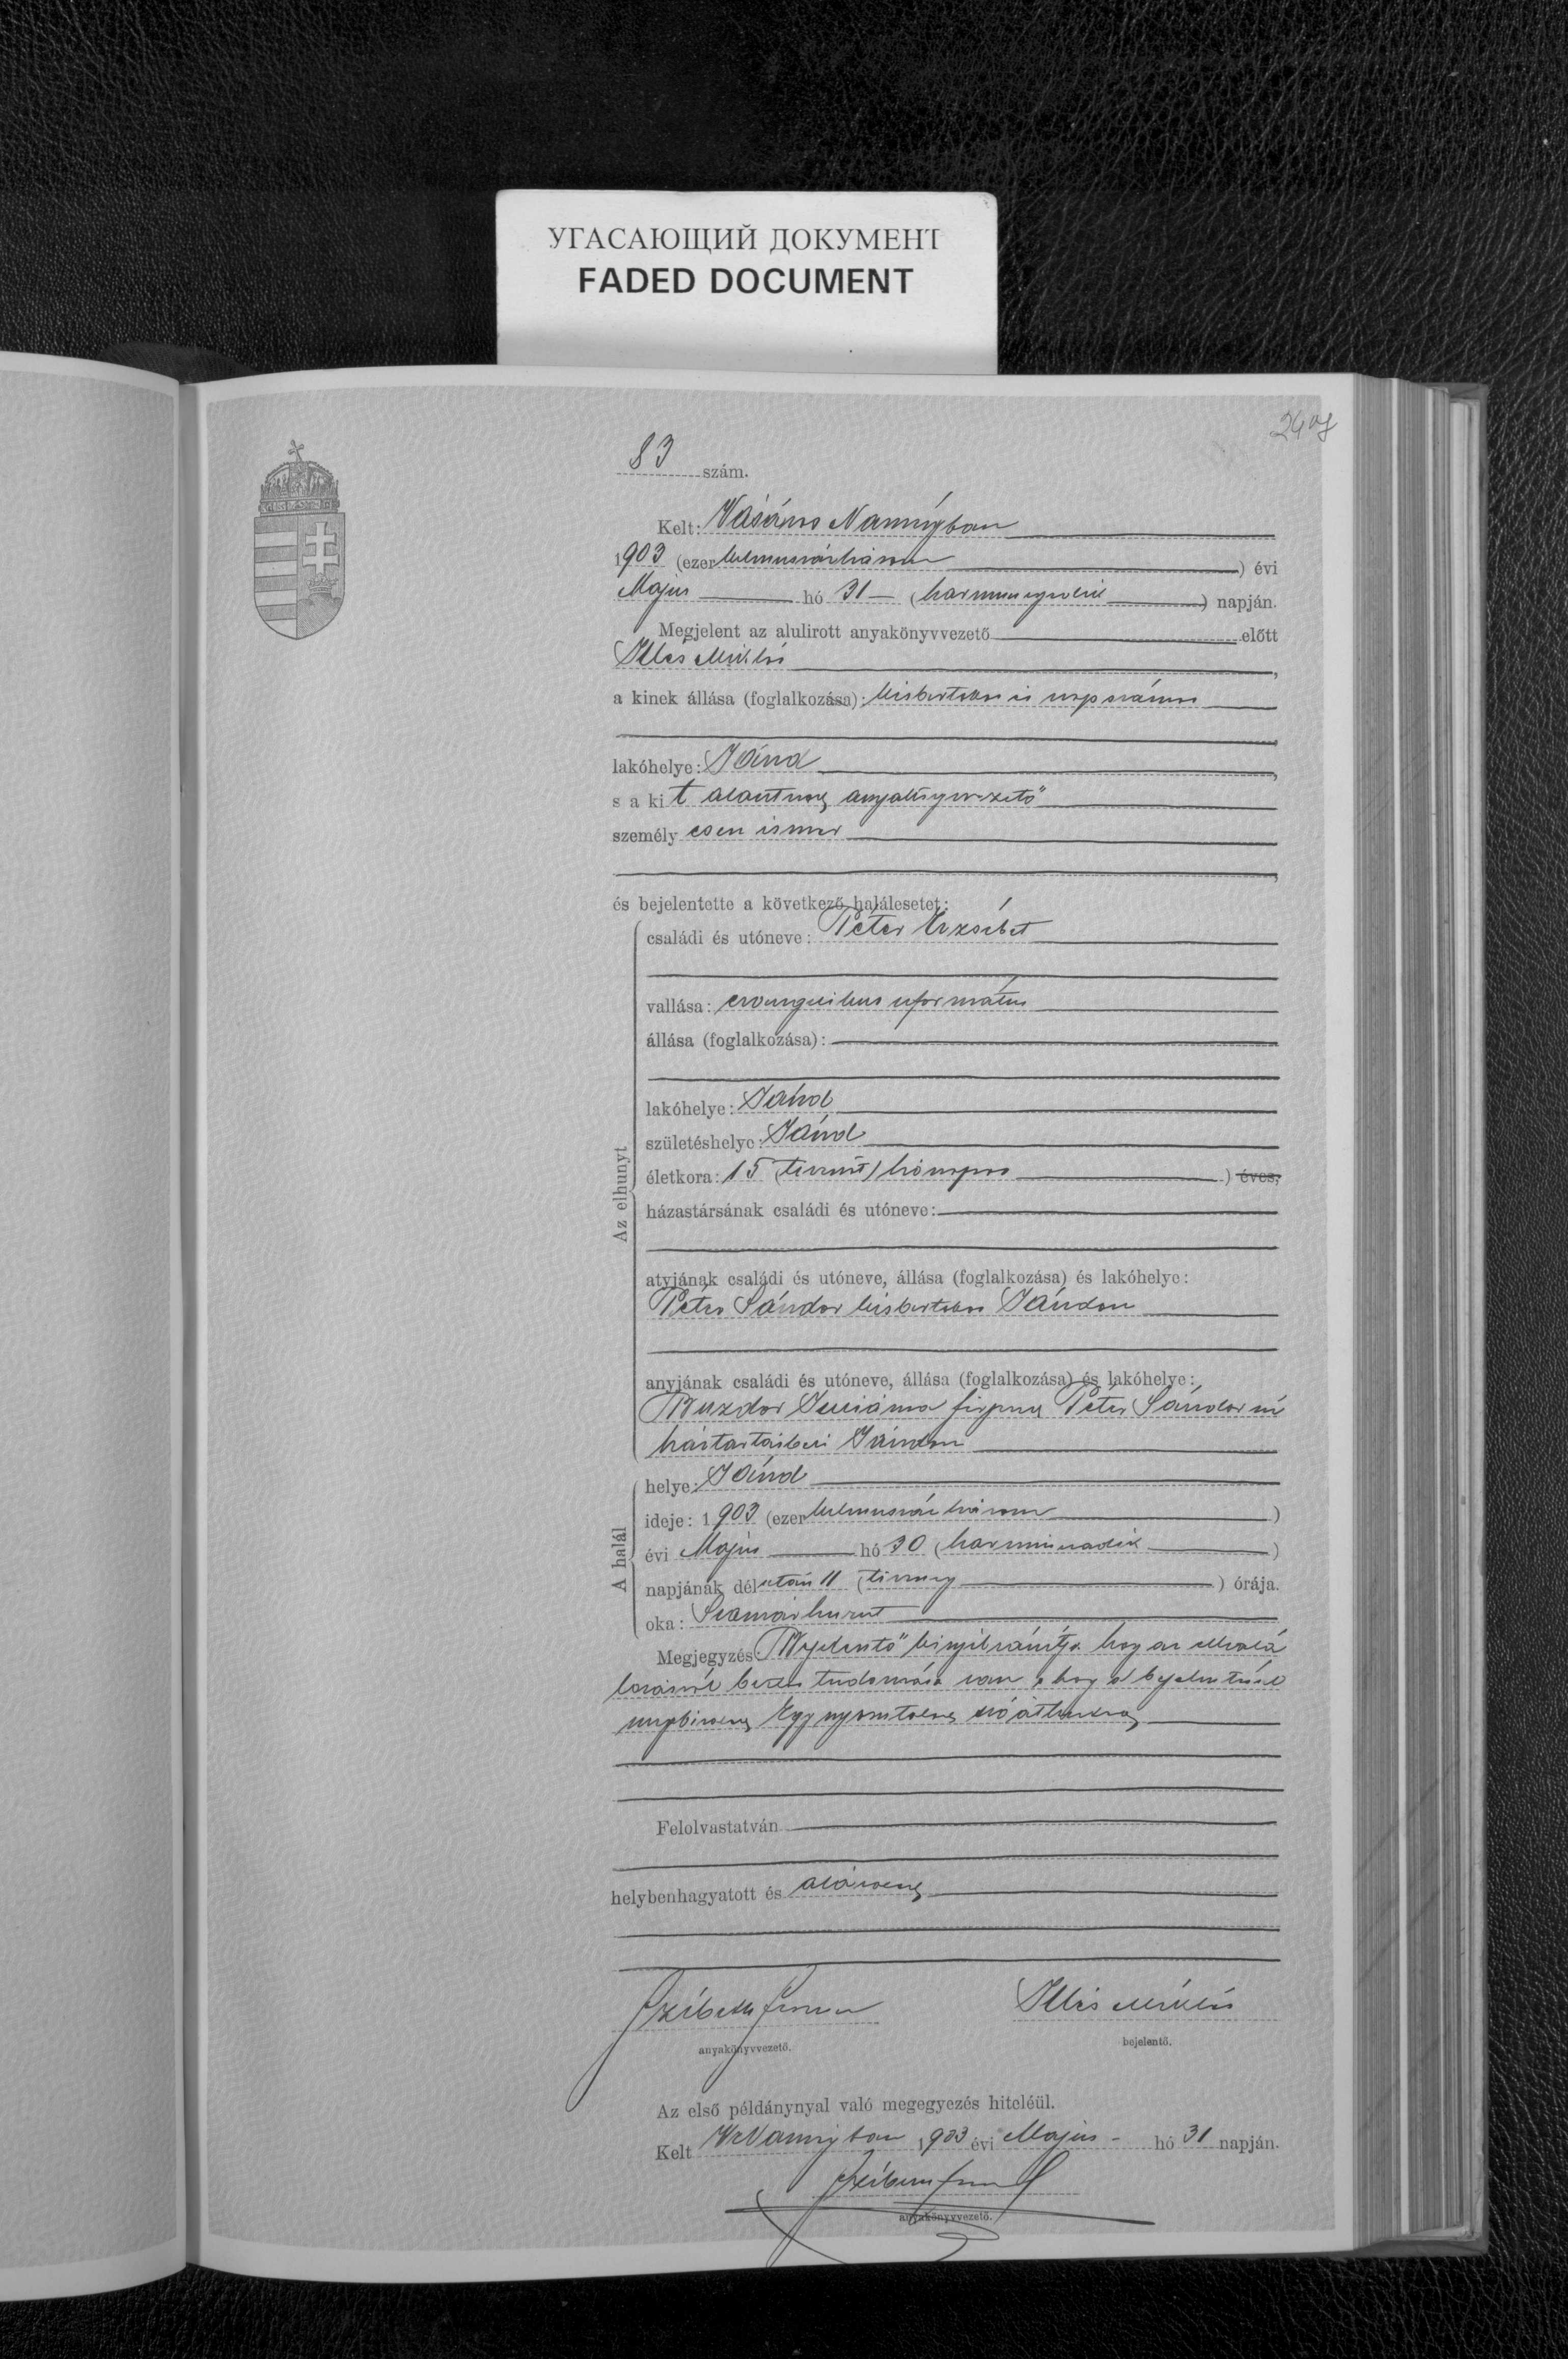 УГАСАЮЩИЙ ДОКУМЕНТ
FADED DOCUMENT
83 szám.
Kelt: Vásáros Naményban
1903 (ezer kilencszázhárom) évi
Május hó 31 (harminczegyedik) napján.
Megjelent az alulirott anyakönyvvezető előtt
Illés Miklós,
a kinek állása (foglalkozása): kisbirtokos és napszámos
lakóhelye: Jánd,
s a kit alantirott anyakönyvvezető
személyesen ismer
és bejelentette a következő halálesetet:
Az elhunyt
családi és utóneve: Péter Erzsébet
vallása: evangelikus református
állása (foglalkozása):
lakóhelye: Jánd
születéshelye: Jánd
életkora: 15 (tizenöt) hónapos ) éves,
házastársának családi és utóneve:
atyjának családi és utóneve, állása (foglalkozása) és lakóhelye:
Péter Sándor kisbirtokos Jándon
anyjának családi és utóneve, állása (foglalkozása) és lakóhelye:
Buzdor Juliánna férjezett Péter Sándor né
háztartásbeli Jándon
A halál
helye: Jánd
ideje: 1903 (ezer kilencszáz három)
évi Május hó 30 (harminczadik)
napjának délután 11 (tizenegy) órája.
oka: Szamárhurut
Megjegyzés: Bejelentő kinyilvánítja hogy az elhalá
lozásról tudomása van s hogy a bejelentéssel
megbízva Egy nyomtatott szó áthúzva
Felolvastatván
helybenhagyatott és aláíratott
anyakönyvvezető.
Illés Miklós
bejelentő.
Az első példánynyal való megegyezés hiteléül.
Kelt VNaményban 1903 évi Május hó 31 napján.
anyakönyvvezető.